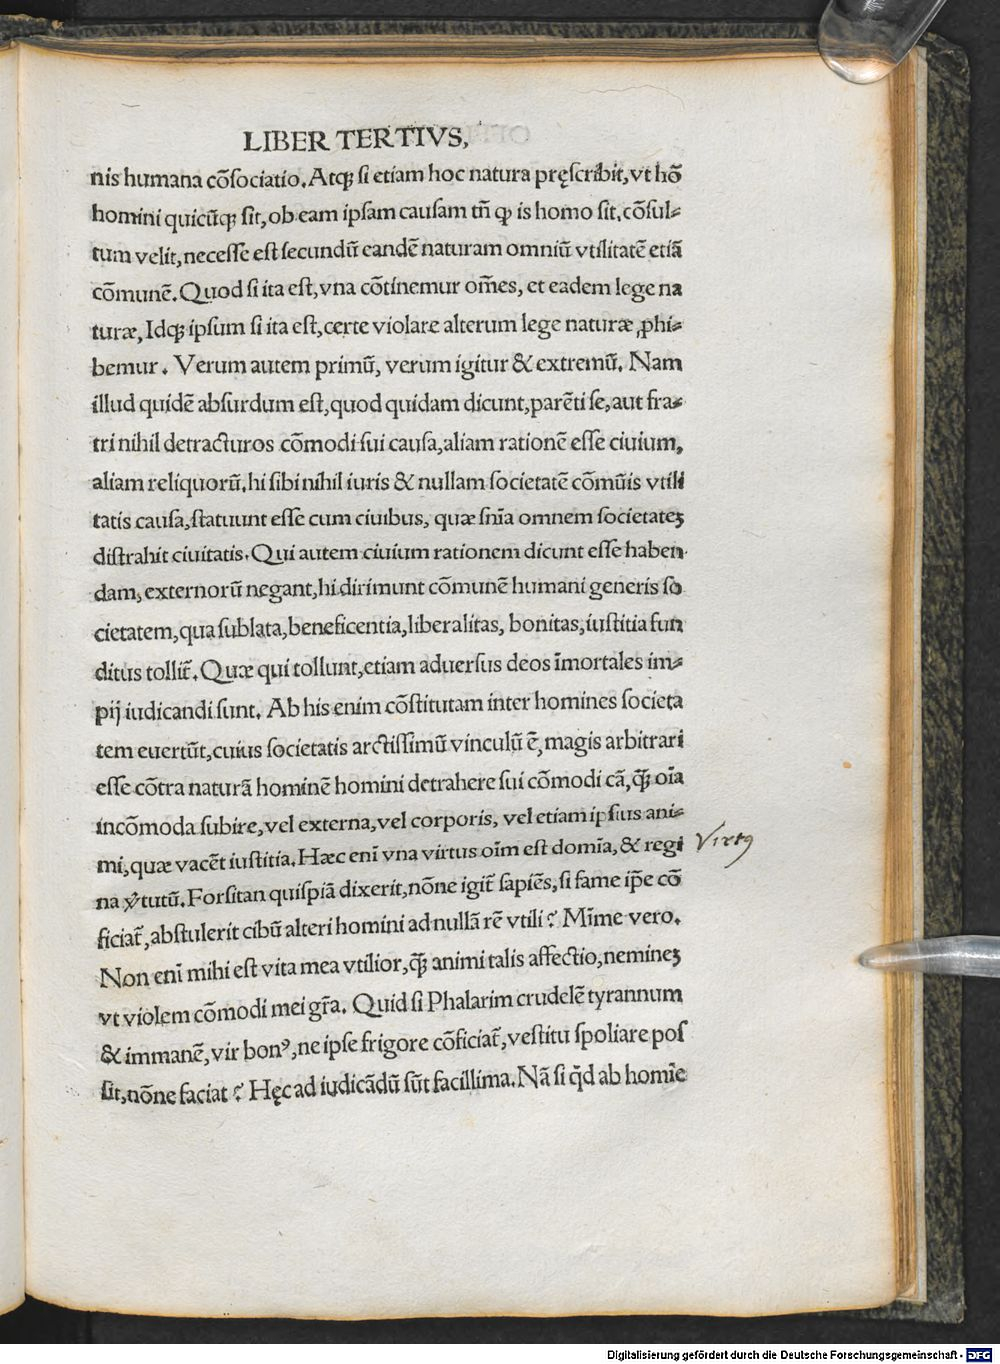 LIBER TERTIVS,
nis humana cõsociatio. Atqꝫ si etiam hoc natura pręscribit, vt hõ
homini quicũqꝫ sit, ob eam ipsam causam tñ ꝙ is homo sit, cõsul-
tum velit, necesse est secundũ eandẽ naturam omniũ vtilitatẽ etiã
cõmunẽ. Quod si ita est, vna cõtinemur om̃es, et eadem lege na
turæ, Idqꝫ ipsum si ita est, certe violare alterum lege naturæ ꝓhi-
bemur. Verum autem primũ, verum igitur & extremũ. Nam
illud quidẽ absurdum est, quod quidam dicunt, parẽti se, aut fra-
tri nihil detracturos cõmodi sui causa, aliam rationẽ esse ciuium,
aliam reliquorũ. hi sibi nihil iuris & nullam societatẽ cõmũis vtili
tatis causa, statuunt esse cum ciuibus, quæ sñia omnem societateꝫ
distrahit ciuitatis. Qui autem ciuium rationem dicunt esse haben
dam, externorũ negant, hi dirimunt cõmunẽ humani generis so
cietatem, qua sublata, beneficentia, liberalitas, bonitas, iustitia fun
ditus tollit̃. Quæ qui tollunt, etiam aduersus deos ĩmortales im-
pij iudicandi sunt. Ab his enim cõstitutam inter homines societa
tem euertũt, cuius societatis arctissimũ vinculũ ẽ, magis arbitrari
esse cõtra naturã hominẽ homini detrahere sui cõmodi cã, q̃ꝫ oĩa
incõmoda subire, vel externa, vel corporis, vel etiam ipsius ani-
mi, quæ vacẽt iustitia. Hæc enĩ vna virtus oĩm est domĩa, & regi
na v̾tutũ. Forsitan quispiã dixerit, nõne igit̃ sapiẽs, si fame ip̃e cõ
ficiat̃, abstulerit cibũ alteri homini ad nullã rẽ vtili? Mĩme vero.
Non enĩ mihi est vita mea vtilior, q̃ꝫ animi talis affectio, nemineꝫ
vt violem cõmodi mei gr̃a. Quid si Phalarim crudelẽ tyrannum
& immanẽ, vir bonꝰ, ne ipse frigore cõficiat̃, vestitu spoliare pos
sit, nõne faciat? Hęc ad iudicãdũ sũt facillima. Nã si q̃d ab homĩe
Virtꝰ
Digitalisierung gefördert durch die Deutsche Forschungsgemeinschaft - DFG